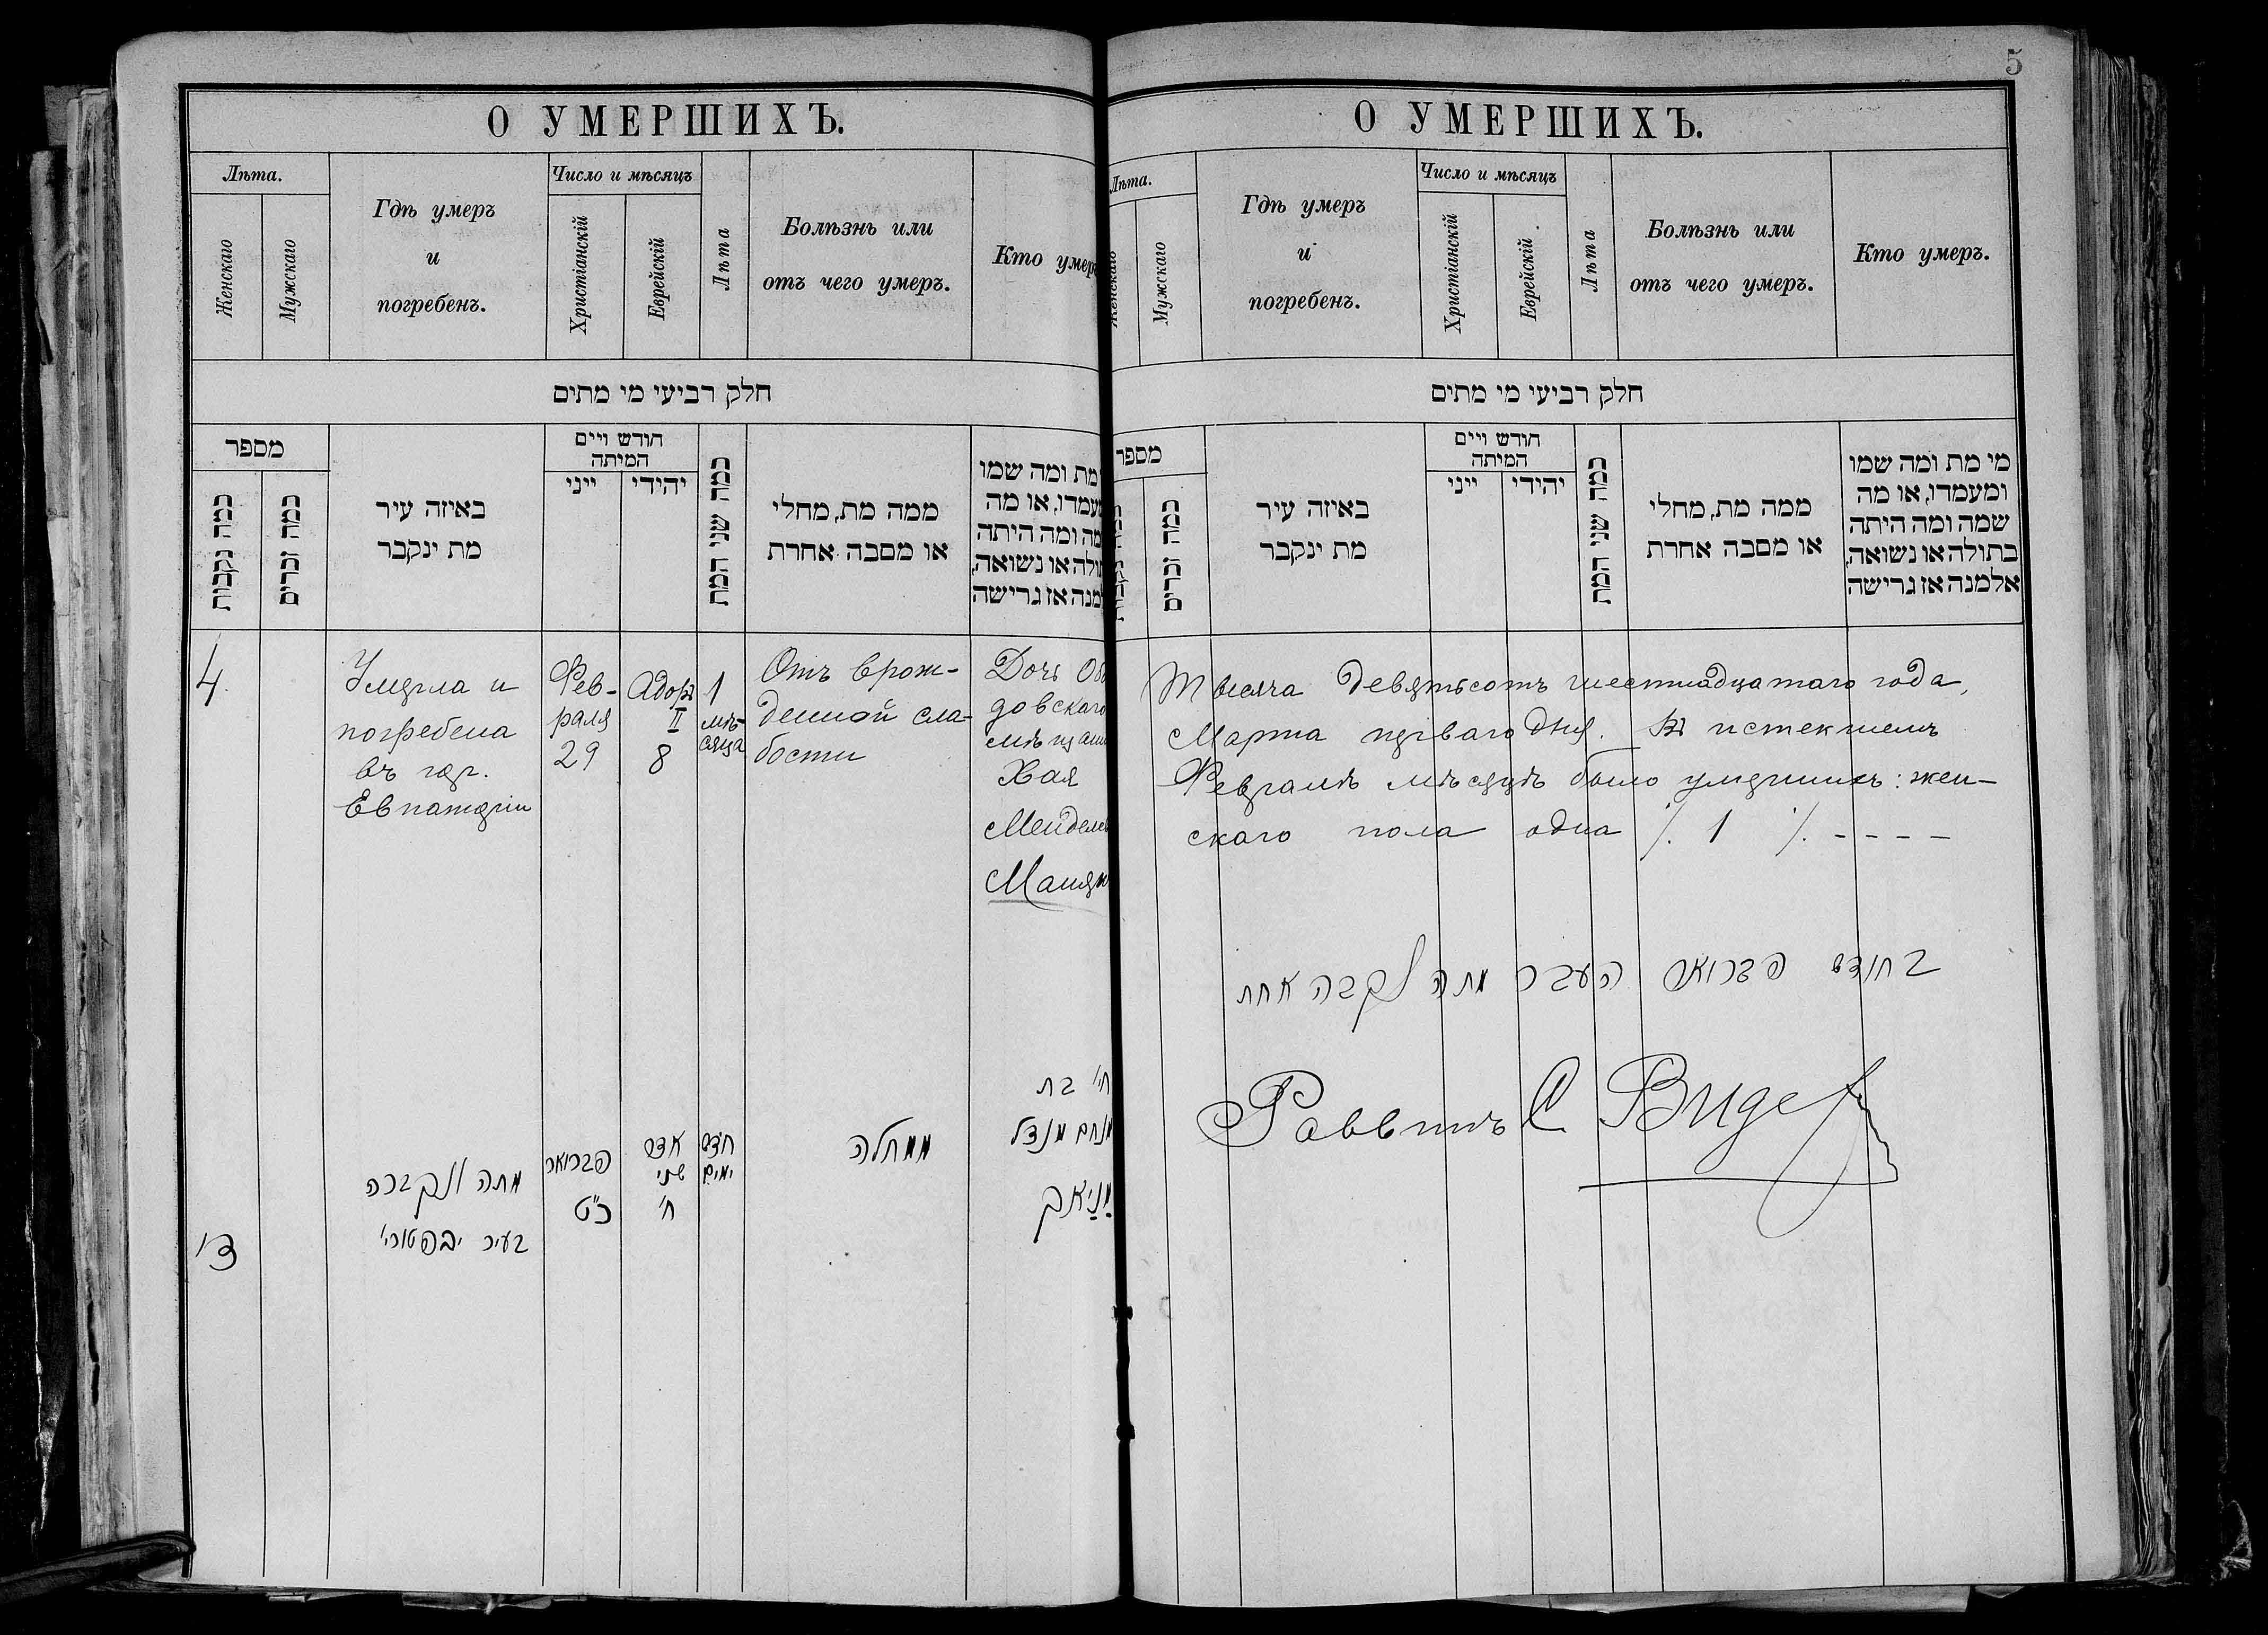 О УМЕРШИХЪ.
Лѣта.
Женскаго
Мужскаго
Гдѣ умеръ
и
погребенъ.
Число и мѣсяцъ
Христіанскій
Еврейскій
Лѣта
Болѣзнь или
отъ чего умеръ.
Кто умер
חלק רביעי מי מתים
מספר
כמה נקבות
כמה זכרים
באיזה עיר
מת ינקבר
חודש ויים
המיתה
ייני
יהידי
כמה שני המת
ממה מת, מחלי
או מסבה אחרת
מת ומה שמו
מעמדו, או מה
מה ומה היתה
תולה או נשואה,
מנה אז גרישה
4.
Умерла и
погребена
въ гор.
Евпаторіи
Фев-
раля
29
Адоръ
II
8
1
мѣ-
сяца
Отъ врож-
денной сла-
бости
Дочь Об
довскаго
мѣщан
Хая
Менделев
Маняк
ד'
מתה ונקברה
בעיר יבפטורי'
פברואר
כ"ט
אדר
שני
ח'
חדש
ימים
ממחלה
חי' בת
מנחם מנדל
מניאק
5
О УМЕРШИХЪ.
Лѣта.
Женскаго
Мужскаго
Гдѣ умеръ
и
погребенъ.
Число и мѣсяцъ
Христіанскій
Еврейскій.
Лѣта
Болѣзнь или
отъ чего умеръ.
Кто умеръ.
חלק רביעי מי מתים
מספר
כמה נקבות
כמה זכרים
באיזה עיר
מת ינקבר
חודש ויים
המיתה
ייני
יהידי
כמה שני המת
ממה מת, מחלי
או מסבה אחרת
מי מת ומה שמו
ומעמדו, או מה
שמה ומה היתה
בתולה או נשואה,
אלמנה אז גרישה
Тысяча девятьсотъ шестнадцатаго года,
Марта перваго дня. Въ истекшемъ
Февралѣ мѣсяцѣ было умершихъ: жен-
скаго пола одна ∕. 1 ∕. - - - -
בחודש פברואר העבר מתה נקבה אחת
Раввинъ С Видер